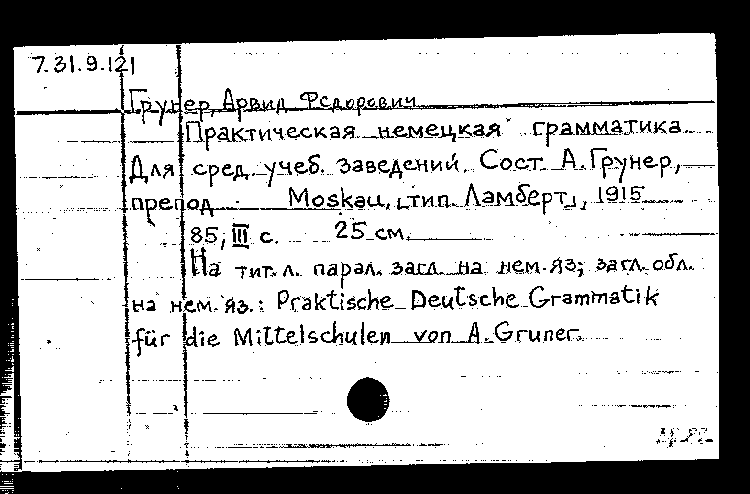 7.31.9.121
Грунер, Арвид Федорович
Практическая немецкая грамматика
Для сред. учеб. заведений. Сост. А. Грунер,
препод. Moskau, [тип. Ламберт], 1915
85, III с. 25 см.
На тит. л. парал. загл. на нем. яз; загл. обл.
на нем. яз.: Praktische Deutsche Grammatik
für die Mittelschulen von A. Gruner.